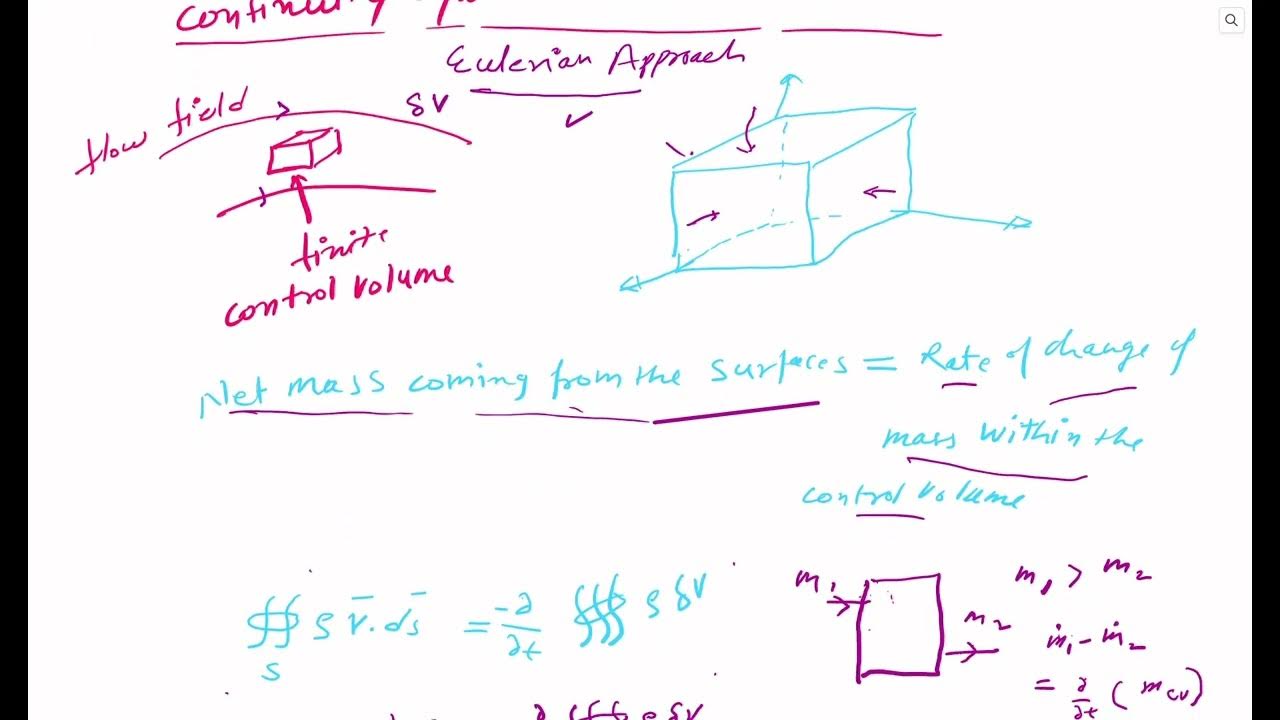 Continuity
Eulerian Approach
flow field
δV
finite
control volume
Net mass coming from the surfaces = Rate of change of
mass within the
control volume
∯ ρ V̅.ds̅ = -∂/∂t ∰ ρ δV
S
m₁
m₁ > m₂
m₂
ṁ₁ - ṁ₂
= ∂/∂t (m_cv)
∂ ∰ ρ δV